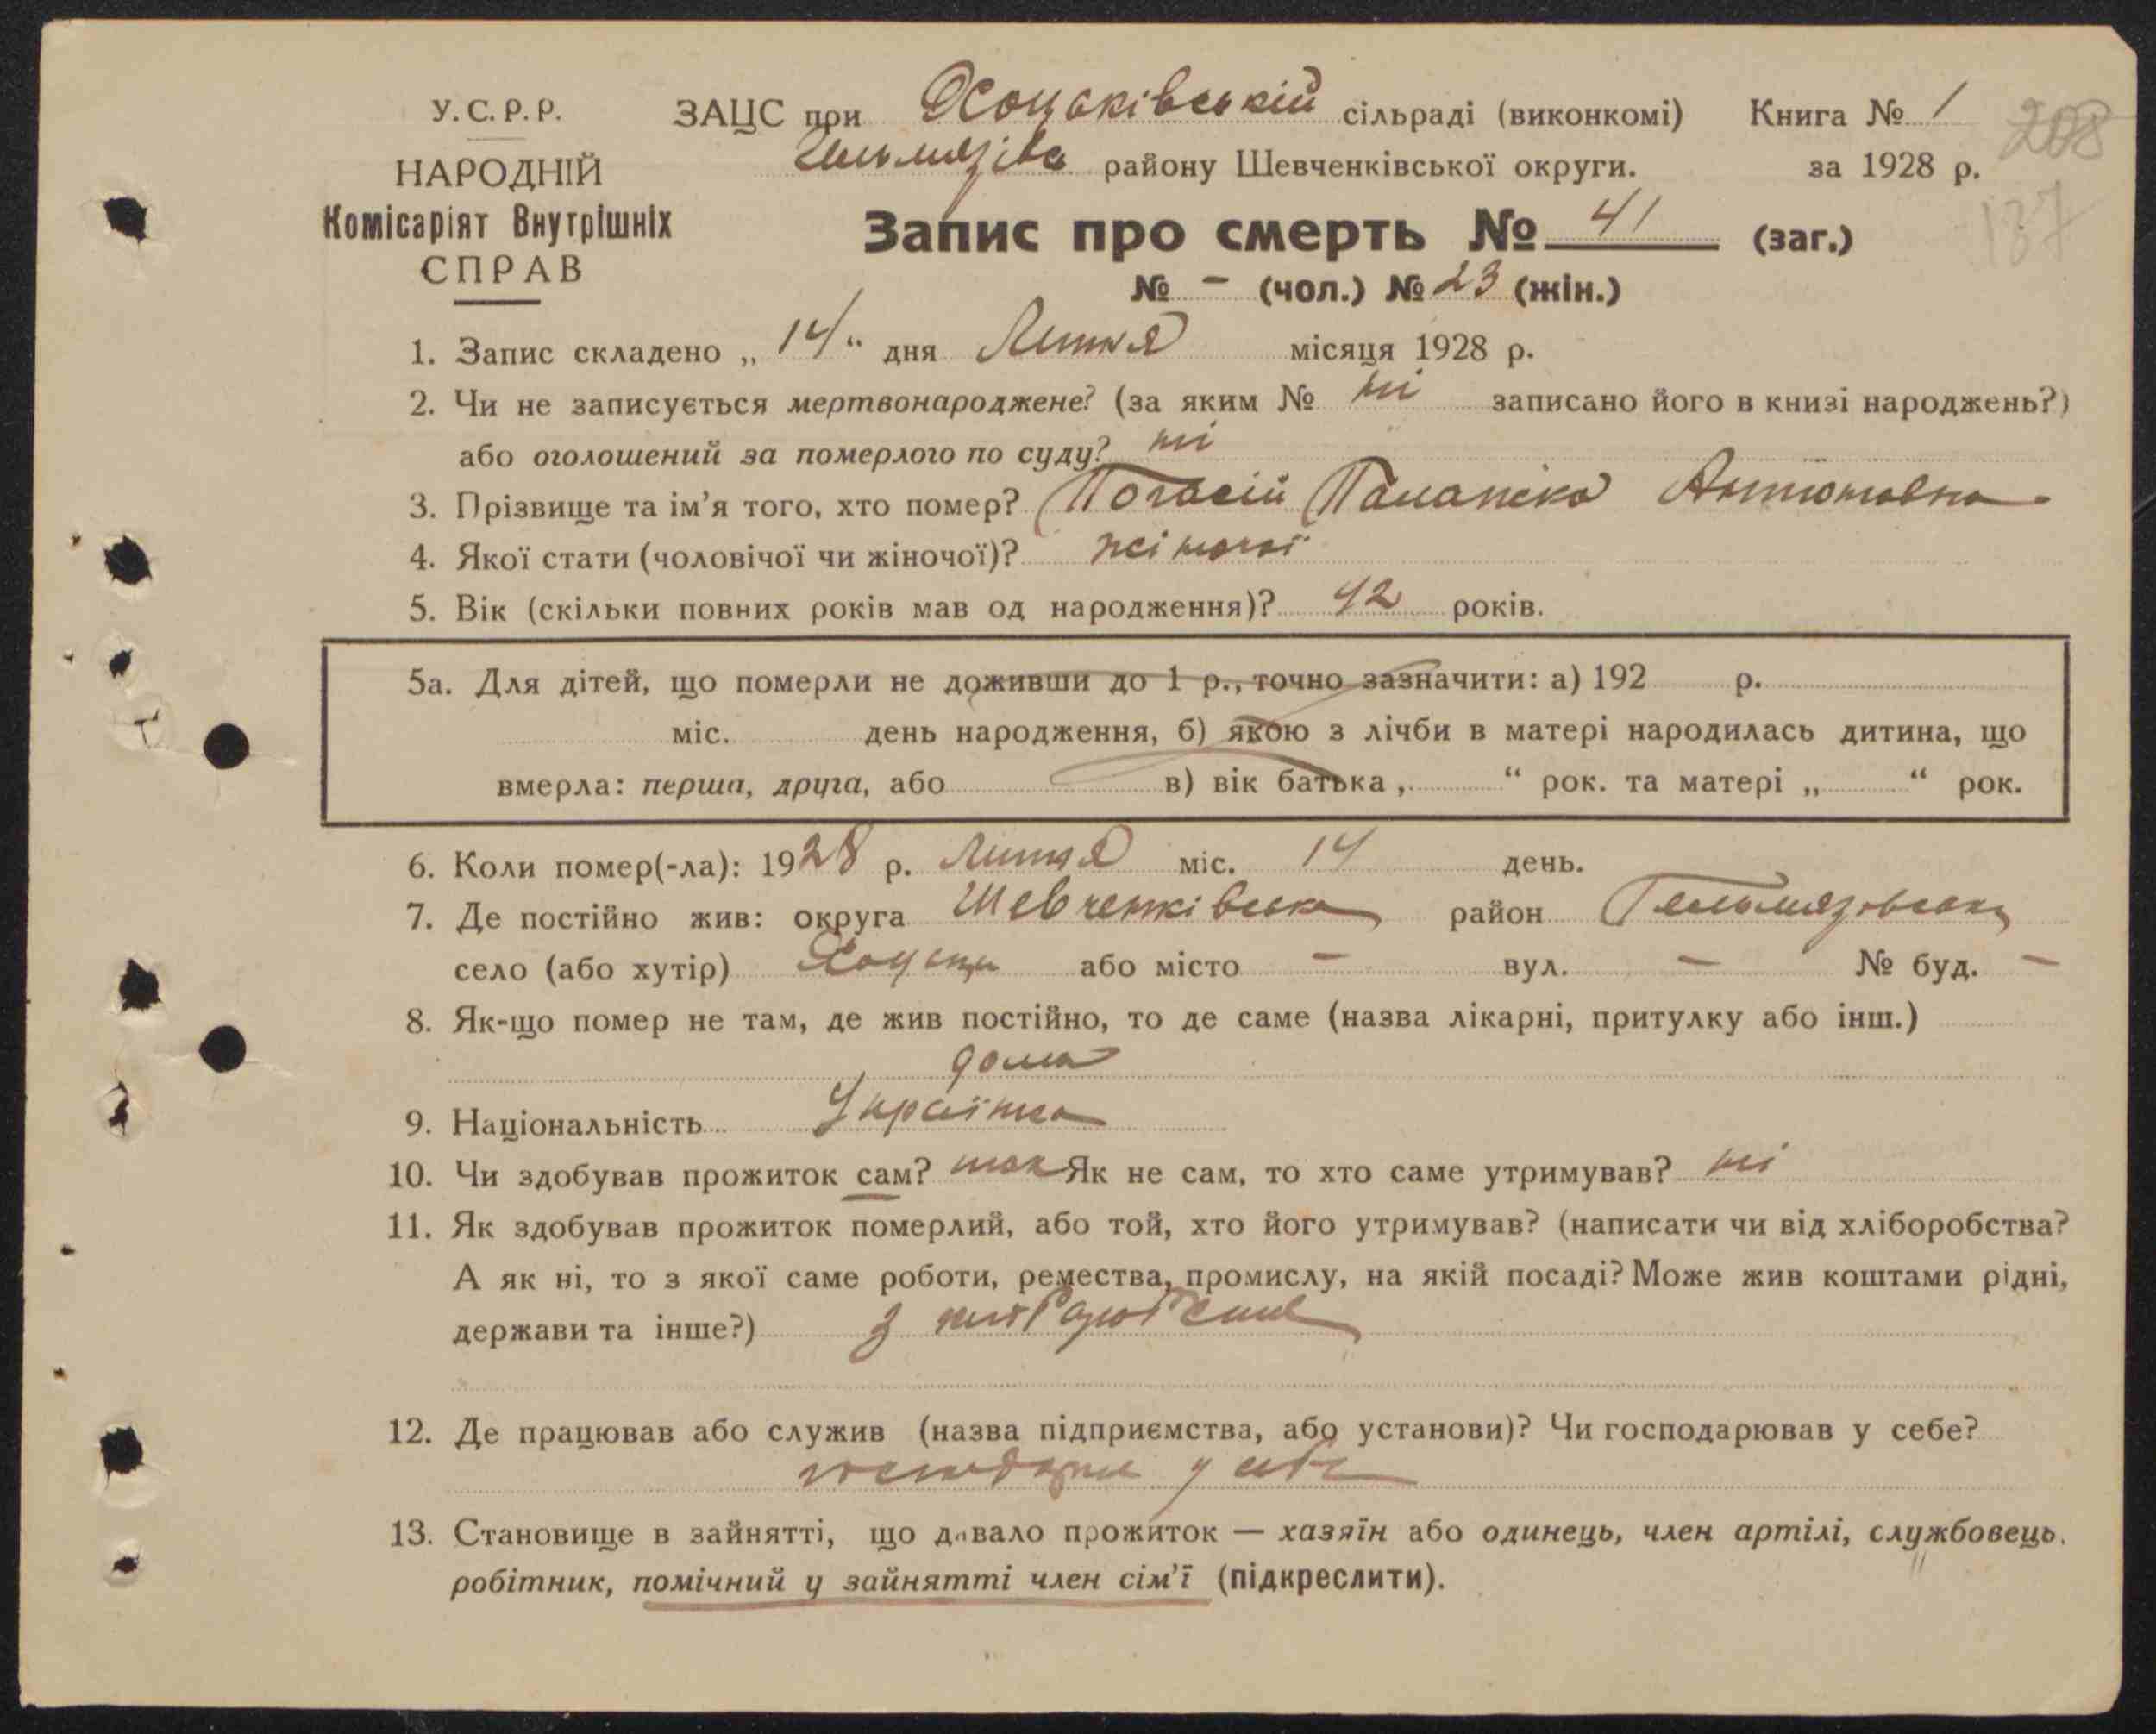 У.С.Р.Р.
НАРОДНІЙ
Комісаріят Внутрішніх
СПРАВ
ЗАЦС при Хоцьківській сільраді (виконкомі) Книга № 1
району Шевченківської округи. за 1928 р.
208
137
Запис про смерть № 41 (заг.)
№ - (чол.) № 23 (жін.)
1. Запис складено „14“ дня Липня місяця 1928 р.
2. Чи не записується мертвонароджене? (за яким № ні записано його в книзі народжень?)
або оголошений за померлого по суду? ні
3. Прізвище та ім'я того, хто помер? Антоновна
4. Якої стати (чоловічої чи жіночої)? жіночої
5. Вік (скільки повних років мав од народження)? 42 років.
5а. Для дітей, що померли не доживши до 1 р., точно зазначити: а) 192 р.
міс. день народження, б) якою з лічби в матері народилась дитина, що
вмерла: перша, друга, або в) вік батька „ “ рок. та матері „ “ рок.
6. Коли помер(-ла): 1928 р. Липня міс. 14 день.
7. Де постійно жив: округа Шевченківська район Гельмязівськи
село (або хутір) Хоцьки або місто - вул. - № буд. -
8. Як-що помер не там, де жив постійно, то де саме (назва лікарні, притулку або інш.)
дома
9. Національність Українка
10. Чи здобував прожиток сам? так Як не сам, то хто саме утримував? ні
11. Як здобував прожиток померлий, або той, хто його утримував? (написати чи від хліборобства?
А як ні, то з якої саме роботи, ремества, промислу, на якій посаді? Може жив коштами рідні,
держави та інше?) з
12. Де працював або служив (назва підприємства, або установи)? Чи господарював у себе?
у себе
13. Становище в зайнятті, що давало прожиток — хазяїн або одинець, член артілі, службовець.
робітник, помічний у зайнятті член сім'ї (підкреслити).